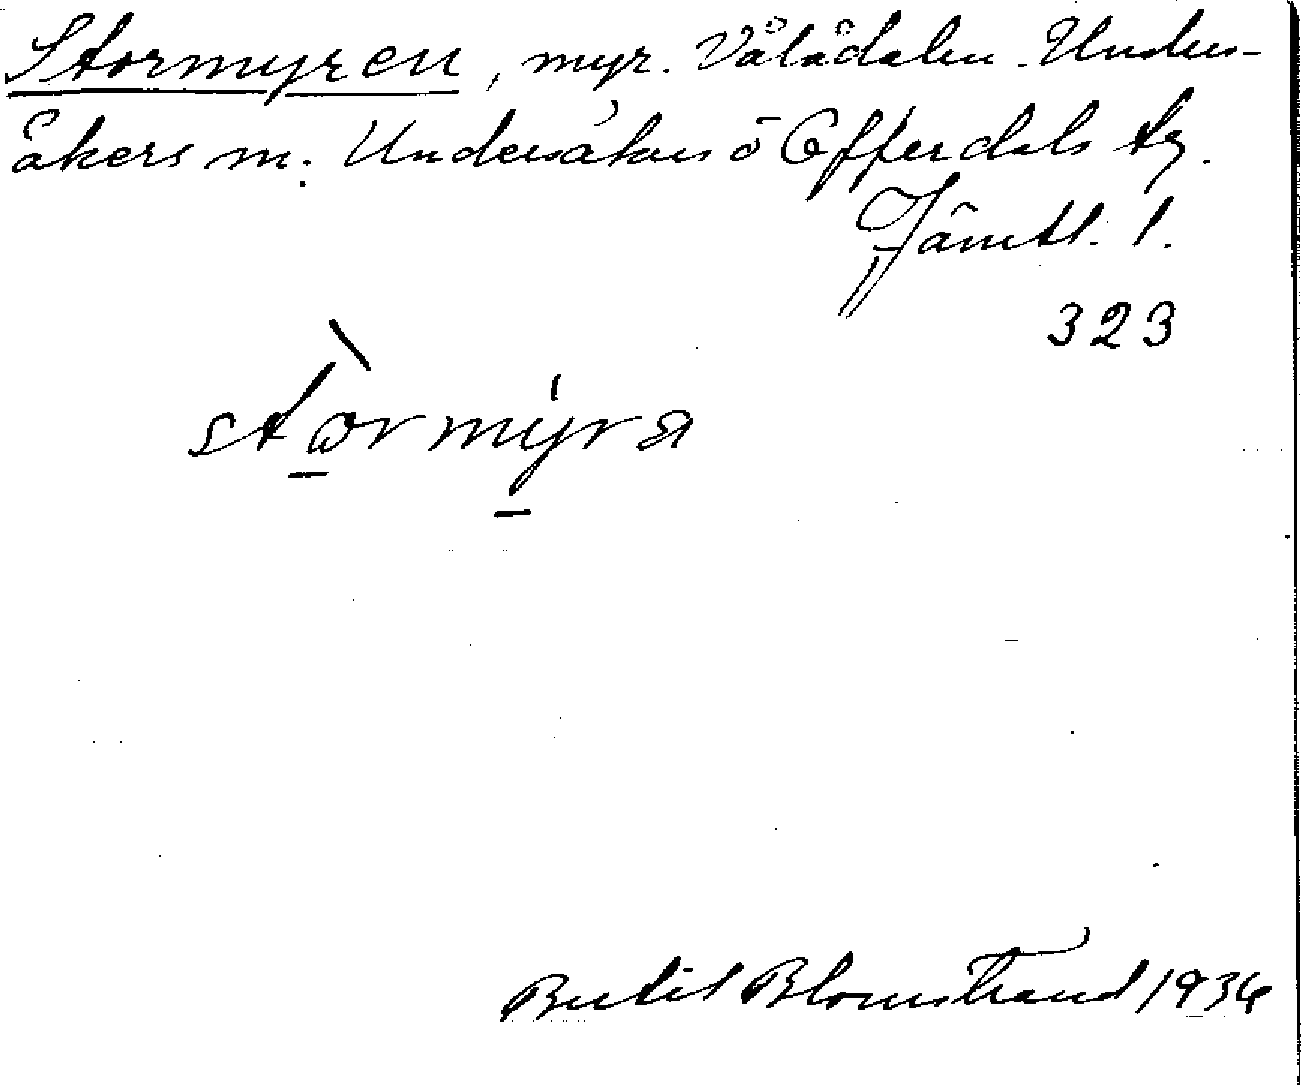 Stormyren, myr. Vålådalen. Under-
såkers sn. Undersåkers o Offerdals tg.
Jämtl. l.
323
stòrmýra
Bertil Blomstrand 1936